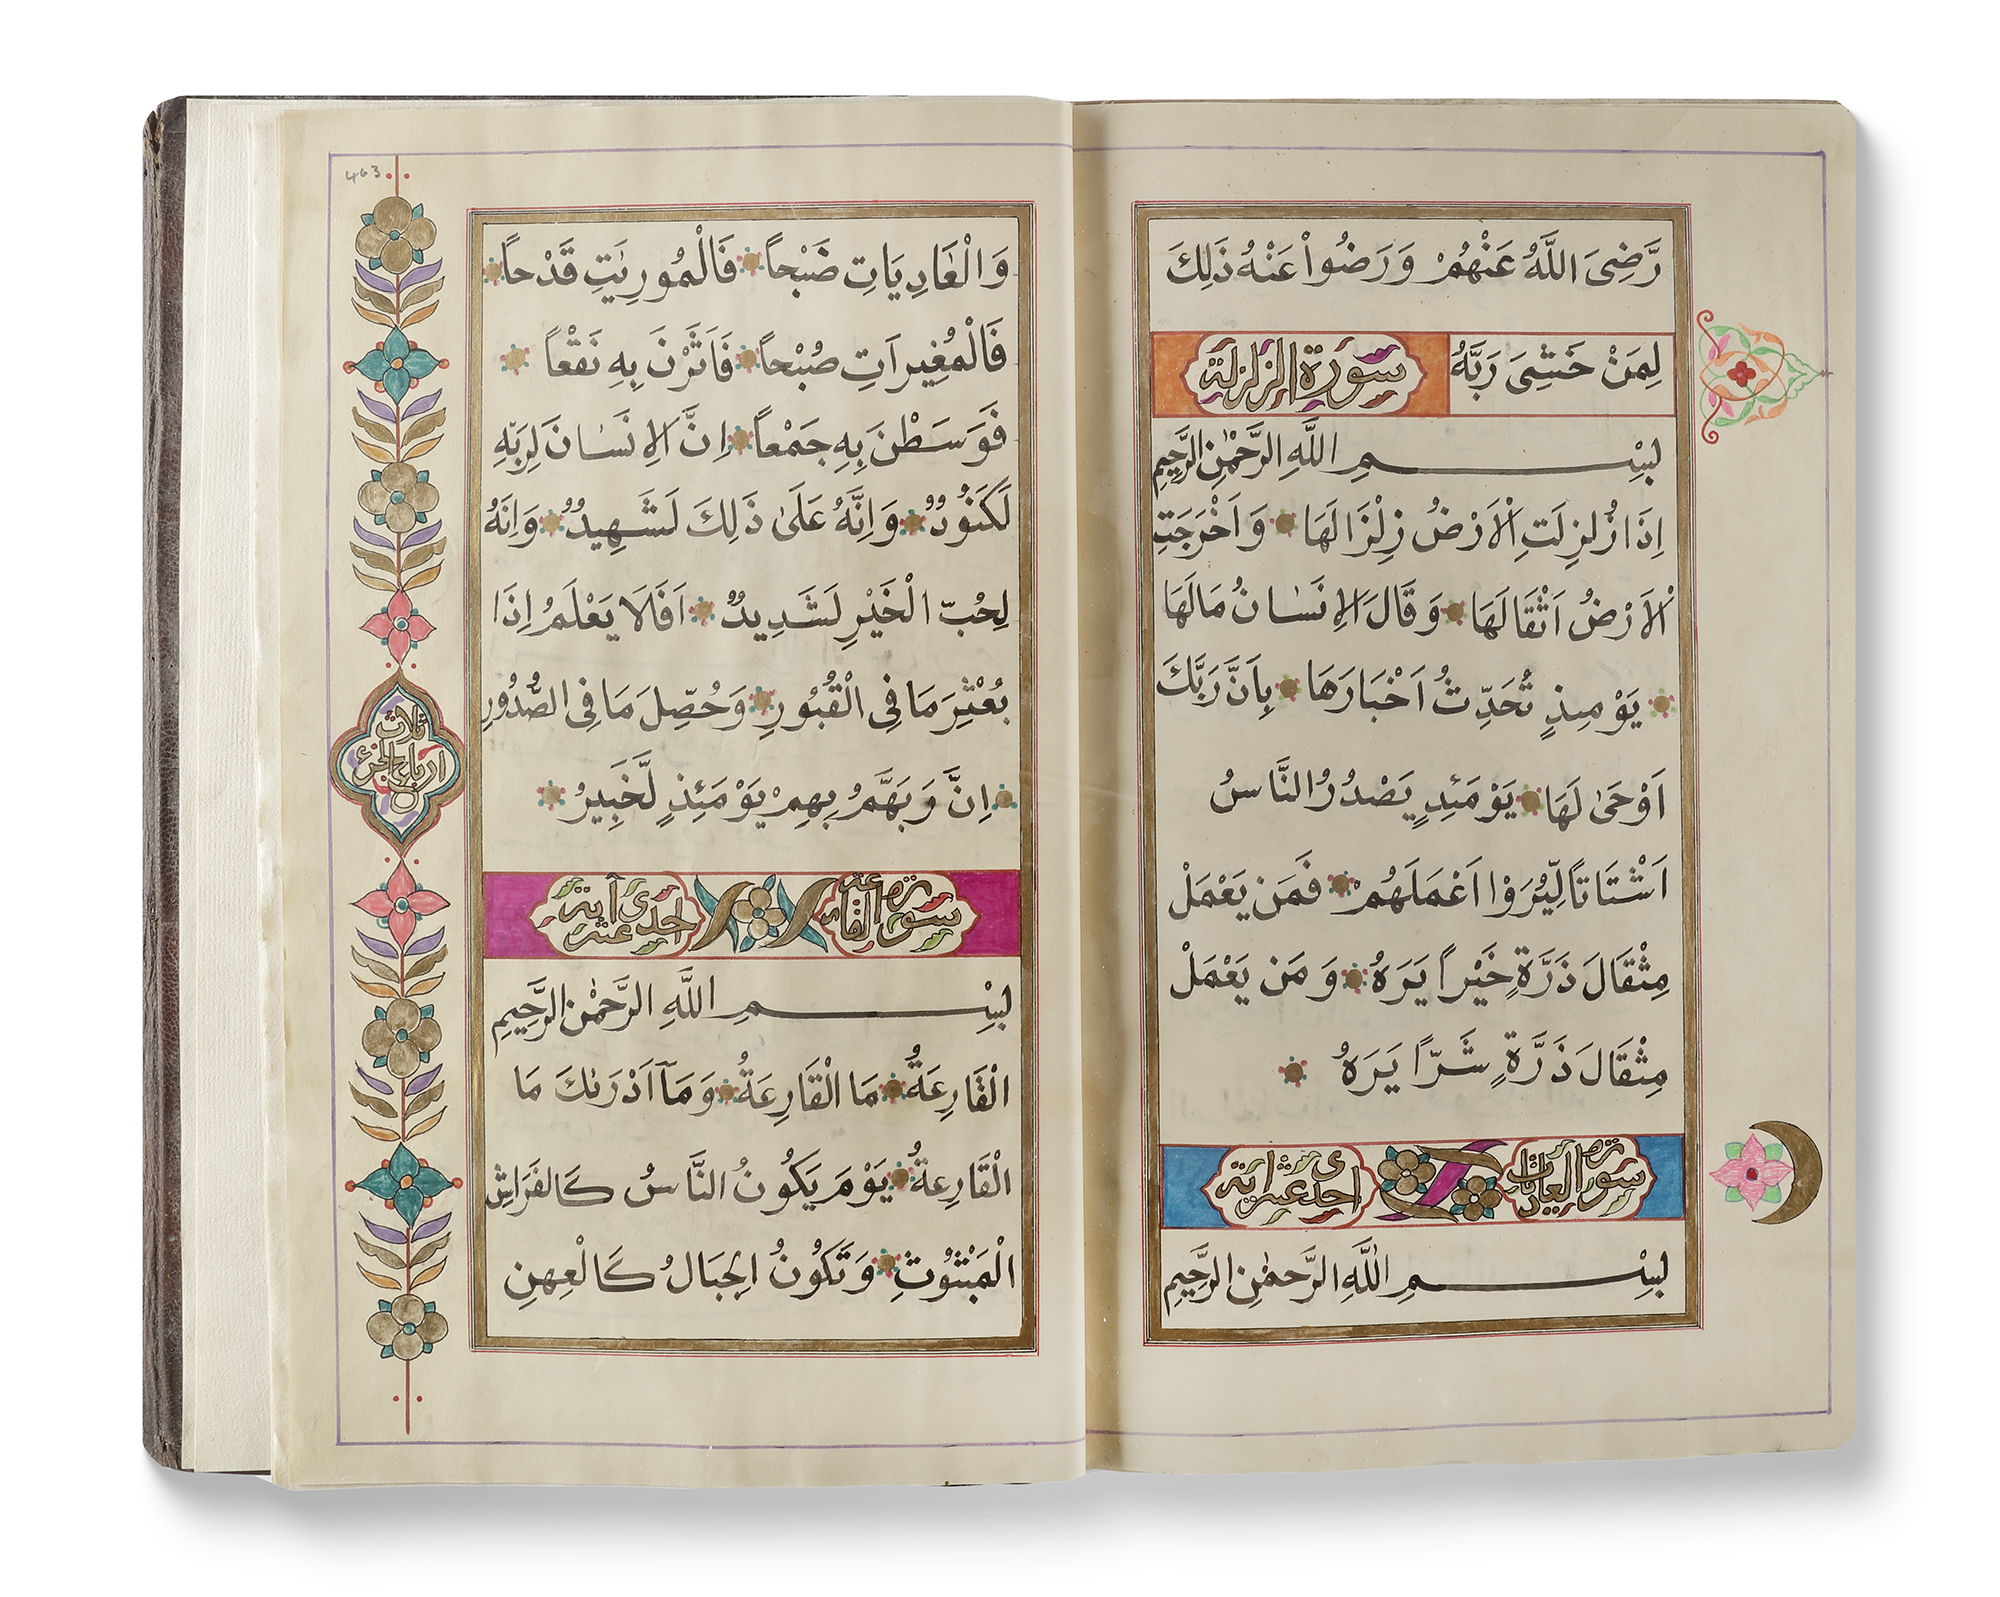 رَّضِىَ اللَّهُ عَنْهُمْ وَرَضُواْ عَنْهُ ذَلِكَ
لِمَنْ خَشِىَ رَبَّهُ سورة الزلزلة
بِسْمِ اللَّهِ الرَّحْمٰنِ الرَّحِيمِ
اِذَا زُلْزِلَتِ الْاَرْضُ زِلْزَالَهَا وَاَخْرَجَتِ
الْاَرْضُ اَثْقَالَهَا وَقَالَ الاِنسَٰانُ مَالَهَا
يَوْمئِذٍ تُحَدِّثُ اَخْبَارَهَا بِاَنَّ رَبَّكَ
اَوْحَىٰ لَهَا يَوْمَئِدٍ يَصْدُرُ النَّاسُ
اَشْتَاتاً لِّيُرَوْا اَعْمَلَهُمْ فَمَن يَعْمَلْ
مِثْقَالَ ذَرَّةٍ خَيْراً يَرَهُ وَمَن يَعْمَلْ
مِثْقَالَ ذَرَّةٍ شَرّاً يَرَهُ
سورة العاديات احدى عشر اية
بِسْمِ اللَّهِ الرَّحمٰنِ الرَّحِيمِ
463
وَالْعَادِيَاتِ ضَبْحاً فَالْمُورِيَٰتِ قَدْحاً
فَالْمُغِيرَاتِ صُبْحاً فَاَثَرْنَ بِهِ نَقْعاً
فَوَسَطْنَ بِهِ جَمْعاً اِنَّ الاِنسَٰانَ لِرَبِّهِ
لَكَنُودٌ وَاِنَّهُ عَلَىٰ ذَلِكَ لَشَهِيدٌ وَاِنَّهُ
لِحُبِّ الْخَيْرِ لَشَدِيدٌ اَفَلَا يَعْلَمُ اِذَا
بُعْثِرَ مَا فِى الْقُبُورِ وَحُصِّلَ مَا فِى الصُّدُورِ
اِنَّ رَبَهَّمُ بِهِمْ يَوْمَئِذٍ لَّخَبِيرُ
ثلاث
ارباع الجزء
سورة القارعة احدى عشر اية
بِسْمِ اللَّهِ الرَّحْمٰنِ الرَّحِيمِ
الْقَارِعَةُ مَا الْقَارِعَةُ وَمَآ اَدْرَىٰكَ مَا
الْقَارِعةُ يَوْمَ يَكُونُ النَّاسُ كَالفَرَاشِ
الْمَبْثُوثِ وَتَكُونُ الجِبَالُ كَالْعِهْنِ